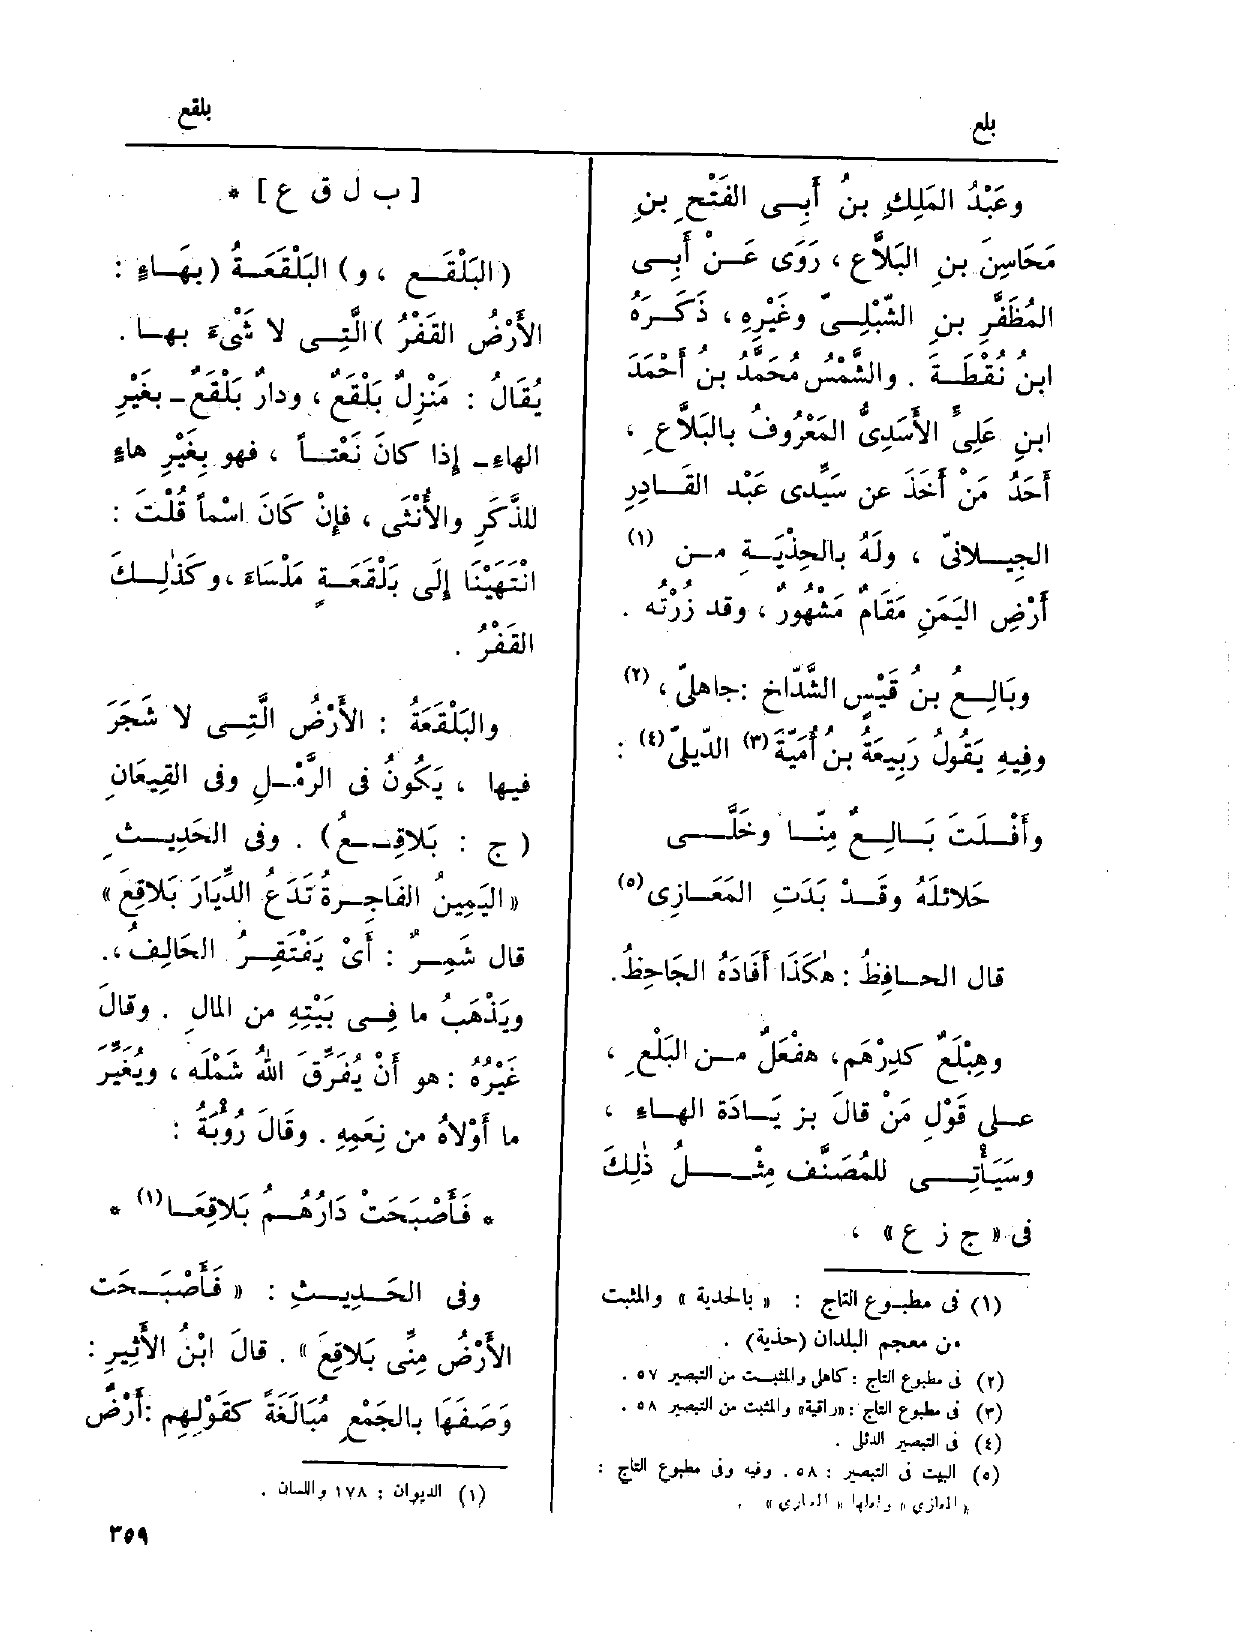 بلع
بلقع
وعَبْدُ المَلِكِ بنُ أَبِى الفَتْحِ بنِ
مَحَاسِنَ بنِ البَلاَّعِ ، رَوَى عَنْ أَبِى
المُظَفَّرِ بنِ الشِّبْلِىّ وغَيْرِهِ ، ذَكَرَهُ
ابنُ نُقْطَةَ . والشَّمْسُ مُحَمَّدُ بنُ أَحْمَدَ
ابنِ عَلِىٍّ الأَسَدِىُّ المَعْرُوفُ بالبَلاَّعِ ،
أَحَدُ مَنْ أَخَذَ عن سَيِّدى عَبْد القَادِرِ
الجِيلانىّ ، ولَهُ بالحِذْيَةِ من (١)
أَرْضِ اليَمَنِ مَقَامٌ مَشْهُورٌ ، وقد زُرْتُه .
وبَالِعُ بنُ قَيْسِ الشَّدّاخِ : جاهلىّ ، (٢)
وفِيهِ يَقُولُ رَبِيعَةُ بنُ أُمَيَّةَ (٣) الدِّيلىّ (٤) :
وأَفْلَتَ بَالِعٌ مِنَّا وخَلَّى
حَلائلَهُ وقَدْ بَدَتِ المَعَازِى (٥)
قال الحافِظُ : هٰكَذَا أَفَادَهُ الجَاحِظُ .
وهِبْلَعٌ كدِرْهَمٍ ، هِفْعَلٌ من البَلْعِ ،
على قَوْلِ مَنْ قالَ بزِيَادَة الهاء ،
وسَيَأْتِى للمُصَنَّف مِثْلُ ذٰلِكَ
فى « ج ز ع » ،
(١) فى مطبوع التاج : « بالحدية » والمثبت
من معجم البلدان (حذية) .
(٢) فى مطبوع التاج : كاهلى والمثبت من التبصير ٥٧ .
(٣) فى مطبوع التاج : «راقية» والمثبت من التبصير ٥٨ .
(٤) فى التبصير الدئلى .
(٥) البيت فى التبصير : ٥٨ . وفيه وفى مطبوع التاج :
[ ب ل ق ع ] *
( البَلْقَع ، و ) البَلْقَعَةُ ( بهَاءٍ :
الأَرْضُ القَفْرُ ) الَّتِى لا شَىْءَ بها .
يُقَالُ : مَنْزِلٌ بَلْقَعٌ ، ودارٌ بَلْقَعٌ - بغَيْرِ
الهاء - إذا كانَ نَعْتاً ، فهو بِغَيْرِ هاءٍ
للذَّكَرِ والأُنْثَى ، فإِنْ كَانَ اسْماً قُلْتَ :
انْتَهَيْنَا إِلَى بَلْقَعَةٍ مَلْسَاءَ ، وكَذٰلِكَ
القَفْرُ .
والبَلْقَعَةُ : الأَرْضُ الَّتِى لا شَجَرَ
فيها ، يَكُونُ فى الرَّمْلِ وفى القِيعَانِ
( ج : بَلاقِعُ ) . وفى الحَدِيثِ
« اليَمِينُ الفَاجِرةُ تَدَعُ الدِّيَارَ بَلاقِعَ »
قال شَمِرٌ : أَىْ يَفْتَقِرُ الحَالِفُ ،
ويَذْهَبُ ما فِى بَيْتِهِ من المَالِ . وقالَ
غَيْرُهُ : هو أَنْ يُفَرِّقَ اللهُ شَمْلَه ، ويُغَيِّرَ
ما أَوْلاهُ من نِعَمِهِ . وقَالَ رُؤْبَةُ :
* فَأَصْبَحَتْ دَارُهُمُ بَلاقِعَا (١) *
وفى الحَدِيثِ : « فَأَصْبَحَت
الأَرْضُ مِنِّى بَلاقِعَ » . قالَ ابْنُ الأَثِيرِ :
وَصَفَهَا بالجَمْعِ مُبَالَغَةً كقَوْلِهِم : أَرْضٌ
(١) الديوان : ١٧٨ واللسان .
٣٥٩